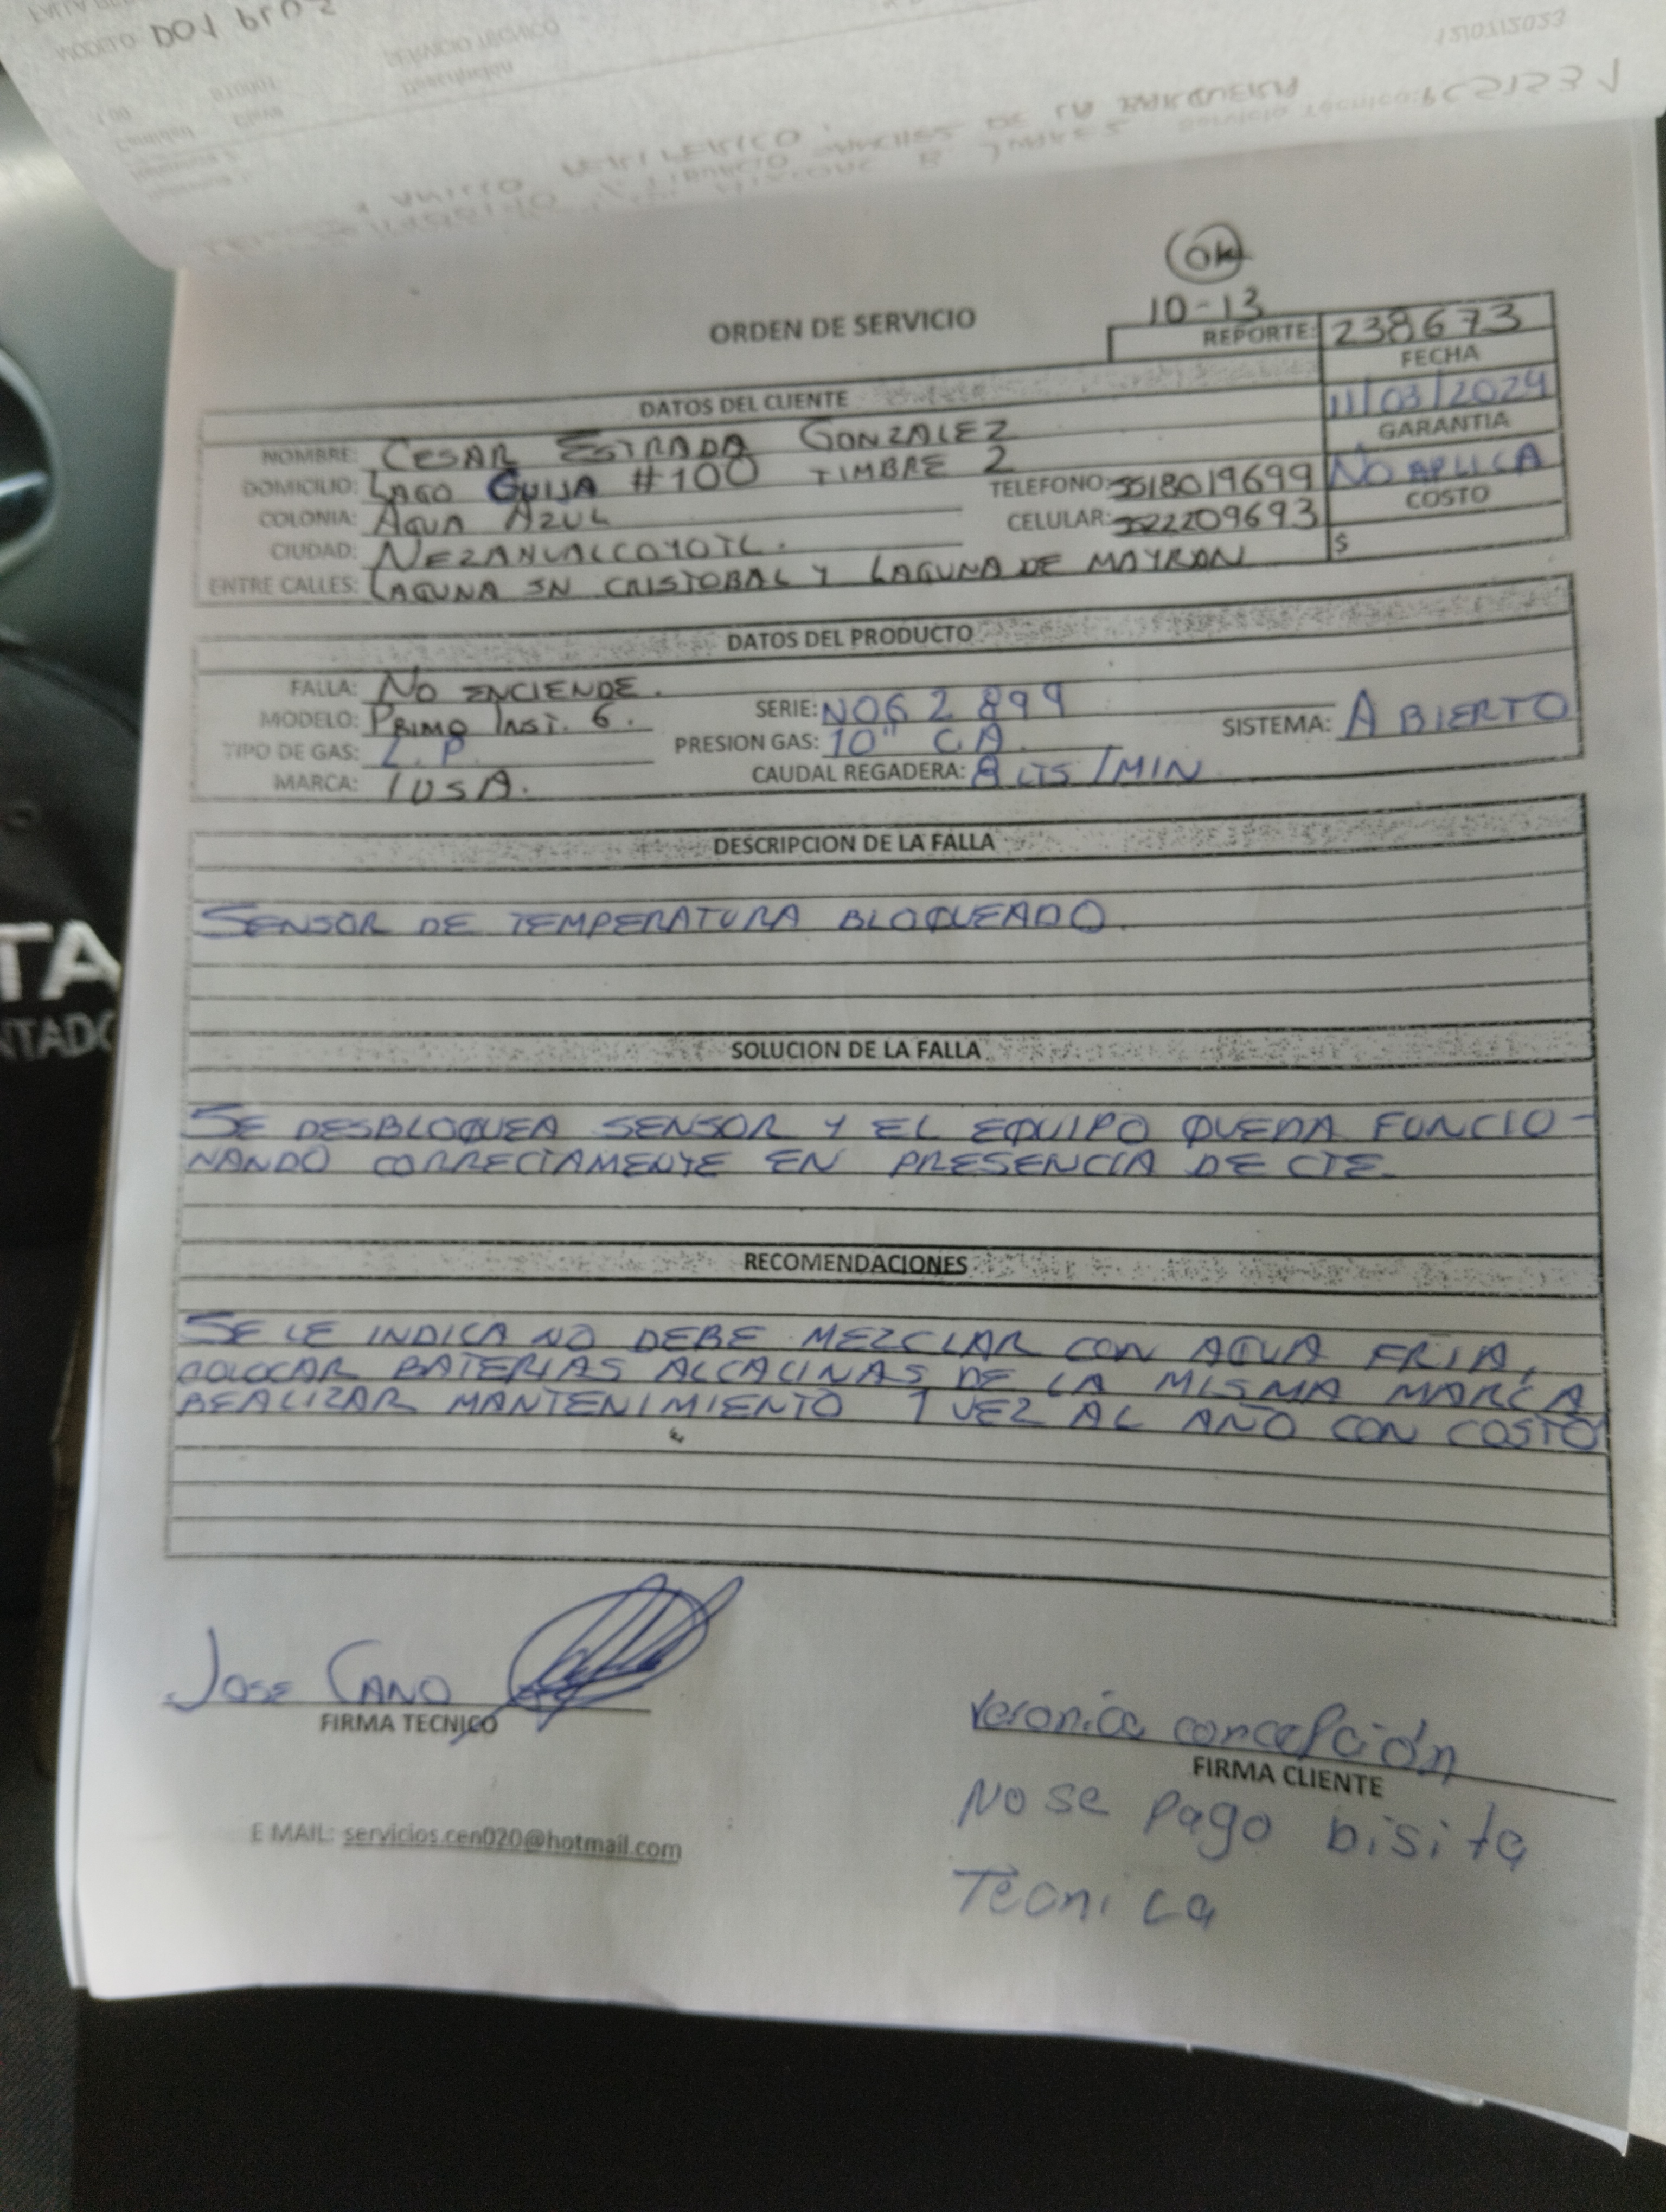 MODELO: DO1 PLUS
SERVICIO TECNICO
12/07/2023
Descripcion
Cantidad
Clave
DE LA BARQUERA
PERIFERICO.
OK
10-13
ORDEN DE SERVICIO
REPORTE: 238673
FECHA
11/03/2024
DATOS DEL CLIENTE
GARANTIA
NO APLICA
NOMBRE: CESAR ESTRADA GONZALEZ
DOMICILIO: LAGO GUIJA #100 TIMBRE 2
TELEFONO: 5518019699
COSTO
COLONIA: AGUA AZUL
CELULAR: 5522209693
$
CIUDAD: NEZAHUALCOYOTL.
ENTRE CALLES: LAGUNA SN CRISTOBAL Y LAGUNA DE MAYRAN
DATOS DEL PRODUCTO
FALLA: NO ENCIENDE.
MODELO: PRIMO INST. 6.
SERIE: N062899
SISTEMA: ABIERTO
TIPO DE GAS: L.P.
PRESION GAS: 10" C.A.
MARCA: IUSA.
CAUDAL REGADERA: 8 LTS/MIN
DESCRIPCION DE LA FALLA
SENSOR DE TEMPERATURA BLOQUEADO.
SOLUCION DE LA FALLA
SE DESBLOQUEA SENSOR Y EL EQUIPO QUEDA FUNCIO-
NANDO CORRECTAMENTE EN PRESENCIA DE CTE.
RECOMENDACIONES
SE LE INDICA NO DEBE MEZCLAR CON AGUA FRIA,
COLOCAR BATERIAS ALCALINAS DE LA MISMA MARCA
REALIZAR MANTENIMIENTO 1 VEZ AL AÑO CON COSTO
JOSE CANO
FIRMA TECNICO
Veronica concepción
FIRMA CLIENTE
No se pago bisita
Tecnica
E MAIL: servicios.cen020@hotmail.com
TA
NTADO